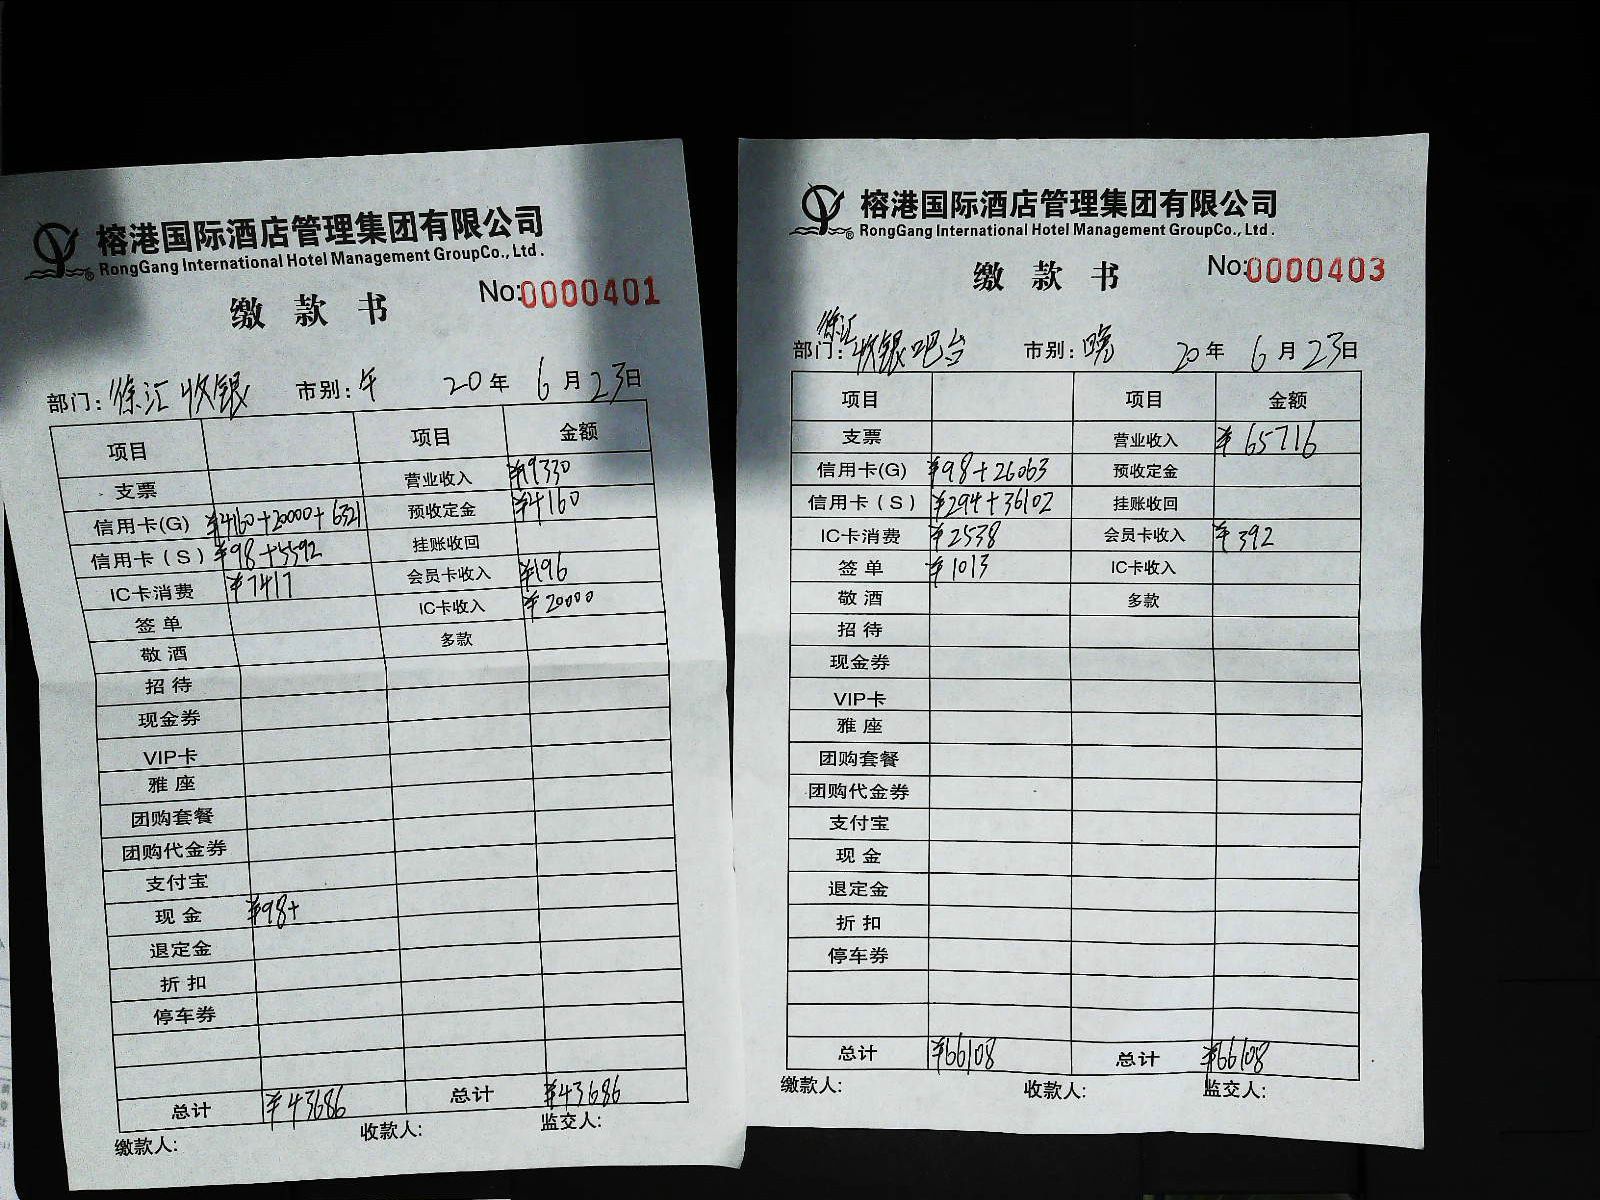 榕港国际酒店管理集团有限公司
RongGang International Hotel Management GroupCo., Ltd.
缴款书 No:0000401
部门: 徐汇 收银 市别: 午 20年 6月23日
项目 项目 金额
支票 营业收入 ¥19330
信用卡(G) ¥4160+20000+6321 预收定金 ¥4160
信用卡(S) ¥98+5592 挂账收回
IC卡消费 ¥7417 会员卡收入 ¥196
签单 IC卡收入 ¥20000
敬酒 多款
招待
现金券
VIP卡
雅座
团购套餐
团购代金券
支付宝
现金 ¥98+
退定金
折扣
停车券
总计 ¥43686 总计 ¥43686
缴款人: 收款人: 监交人:
榕港国际酒店管理集团有限公司
RongGang International Hotel Management GroupCo., Ltd.
缴款书 No:0000403
部门: 徐汇 收银吧台 市别: 晚 20年 6月23日
项目 项目 金额
支票 营业收入 ¥65716
信用卡(G) ¥98+26063 预收定金
信用卡(S) ¥294+36102 挂账收回
IC卡消费 ¥2538 会员卡收入 ¥392
签单 ¥1013 IC卡收入
敬酒 多款
招待
现金券
VIP卡
雅座
团购套餐
团购代金券
支付宝
现金
退定金
折扣
停车券
总计 ¥66108 总计 ¥66108
缴款人: 收款人: 监交人: